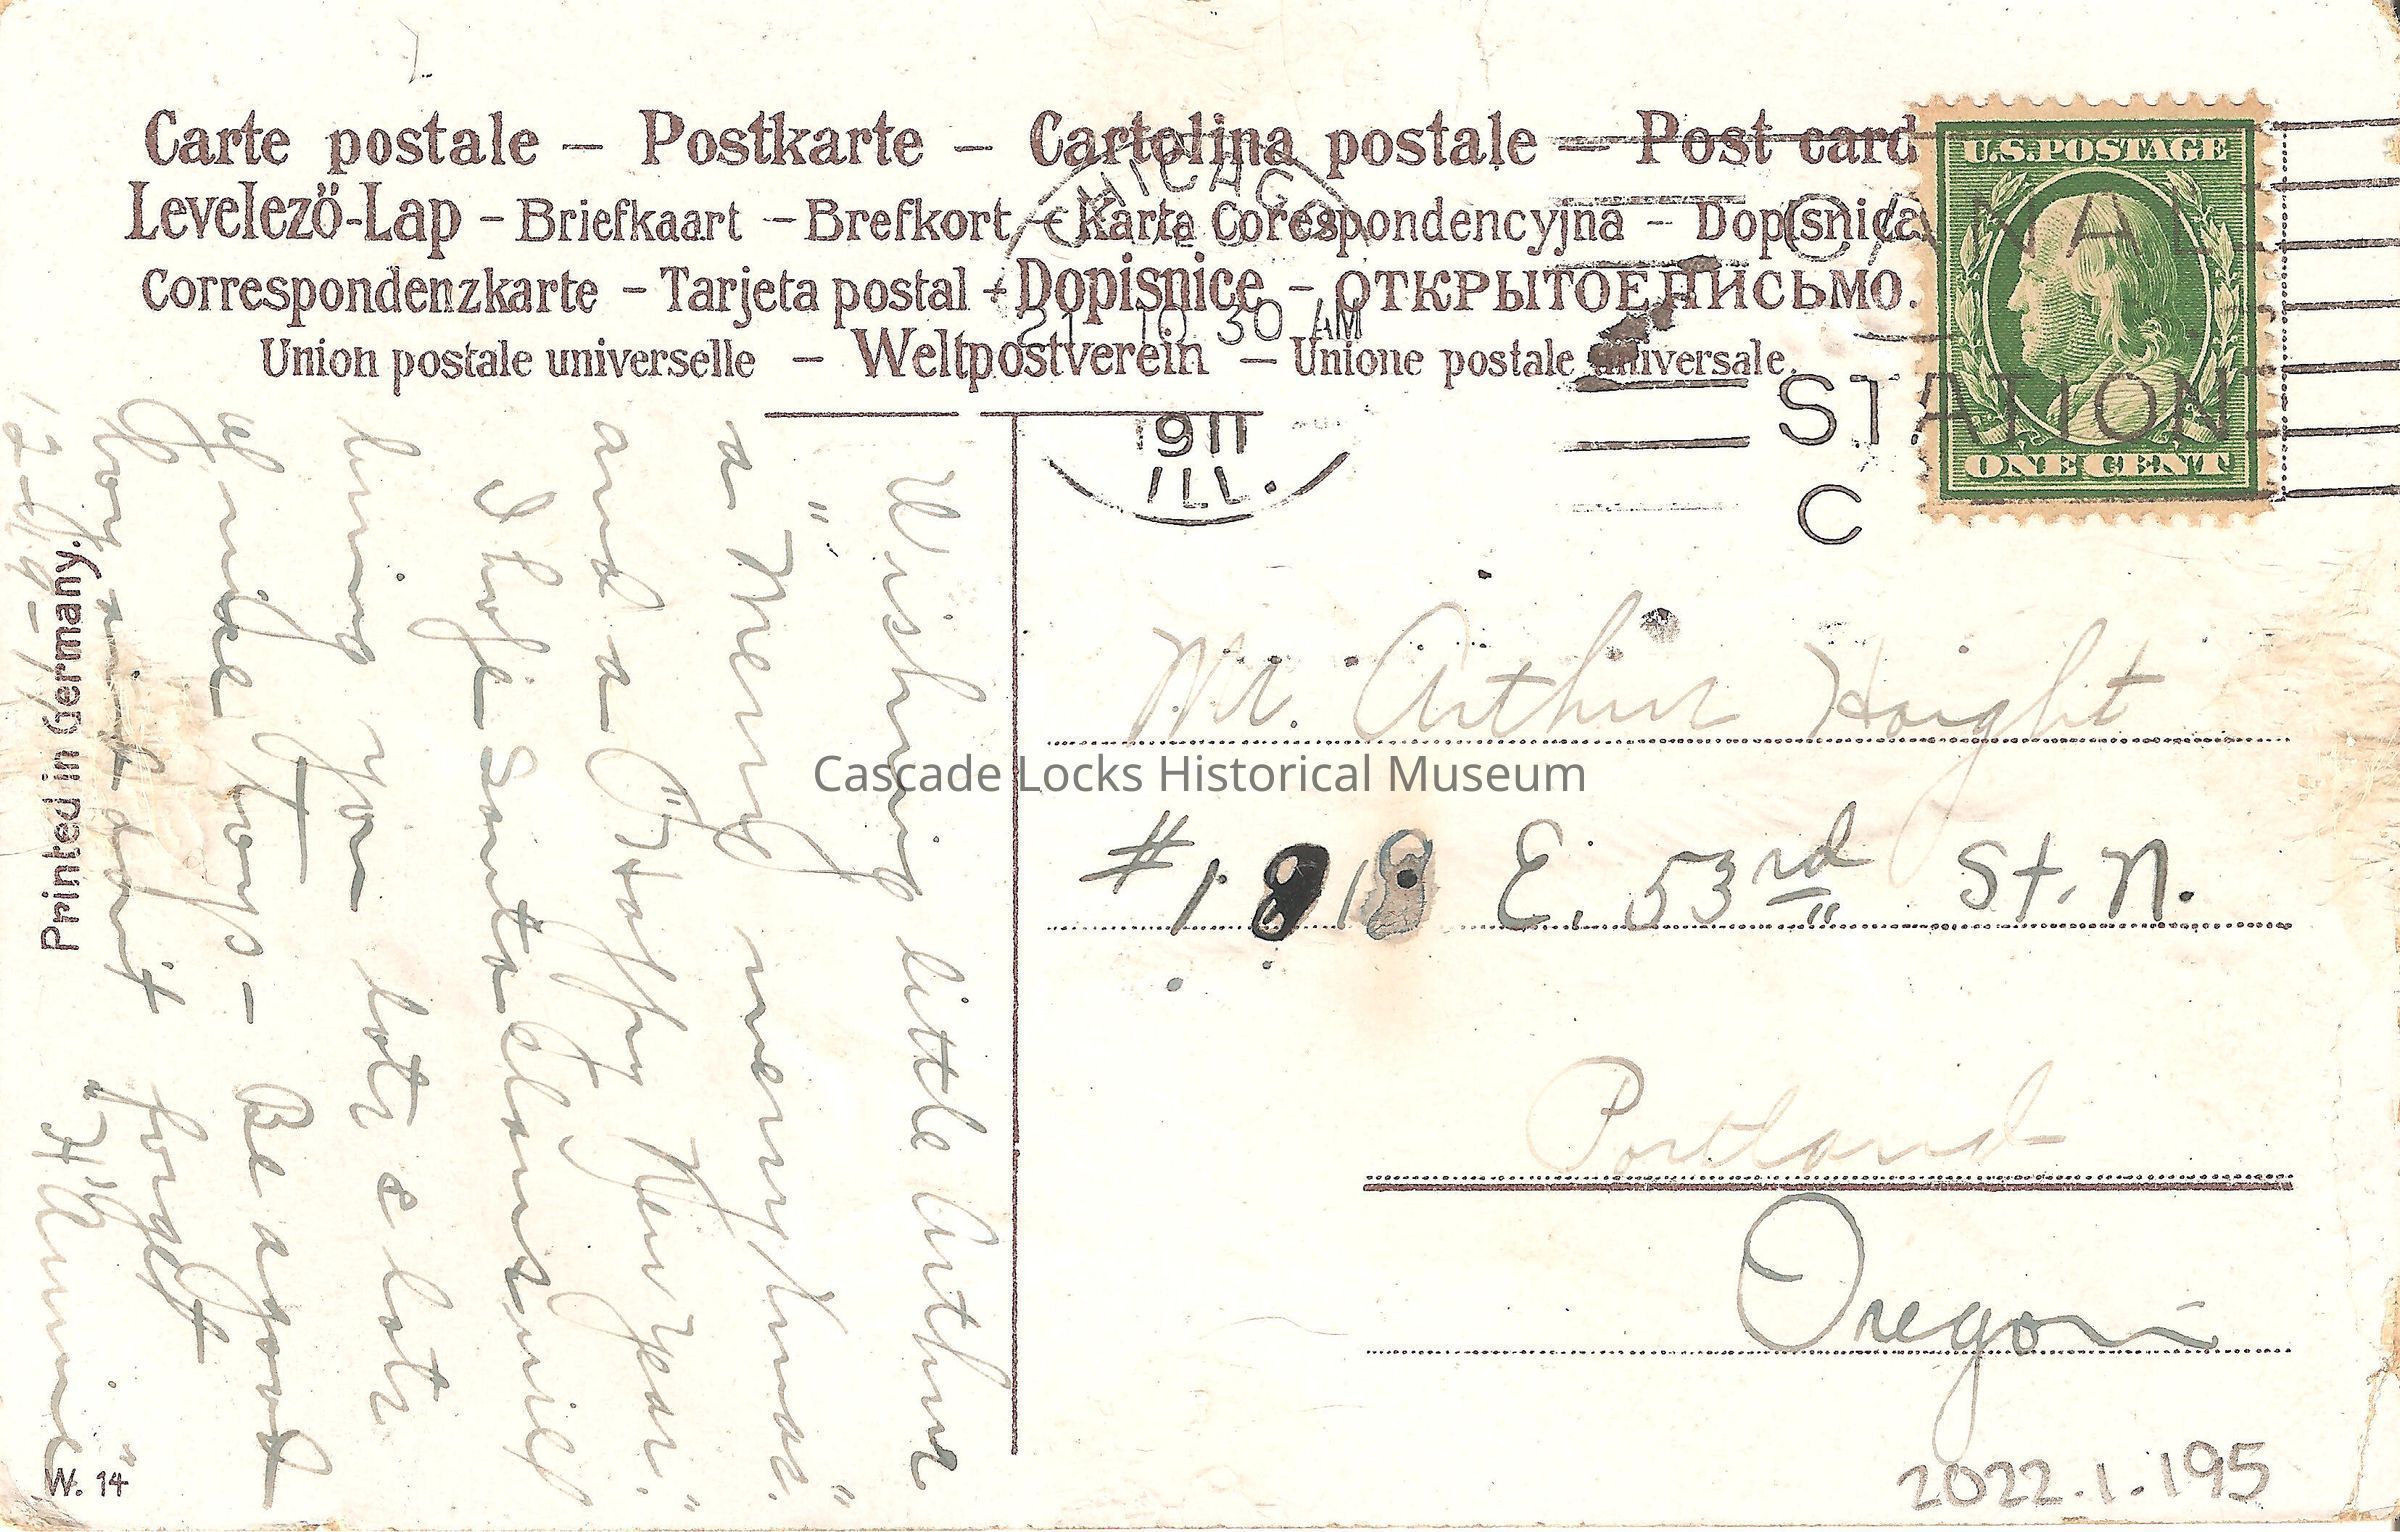 Carte postale — Postkarte — Cartolina postale — Post card
Levelező-Lap – Briefkaart – Brefkort – Karta Corespondencyjna – Dopisnica
Correspondenzkarte – Tarjeta postal – Dopisnice – ОТКРЫТОЕ ПИСЬМО.
Union postale universelle — Weltpostverein — Unione postale universale.
U.S. POSTAGE
ONE CENT
CHICAGO
21 10 30 AM
1911
ILL.
CANAL
STATION
C
Mr. Arthur Haight
#1818 E. 53rd St. N.
Portland
Oregon
Wishing little Arthur
"a Merry merry Xmas."
and a "Happy New Year."
I hope Santa Claus will
bring you lots & lots
of nice things — Be a good
boy and don't forget
"H. Annie"
Printed in Germany.
W. 14
Cascade Locks Historical Museum
2022.1.195